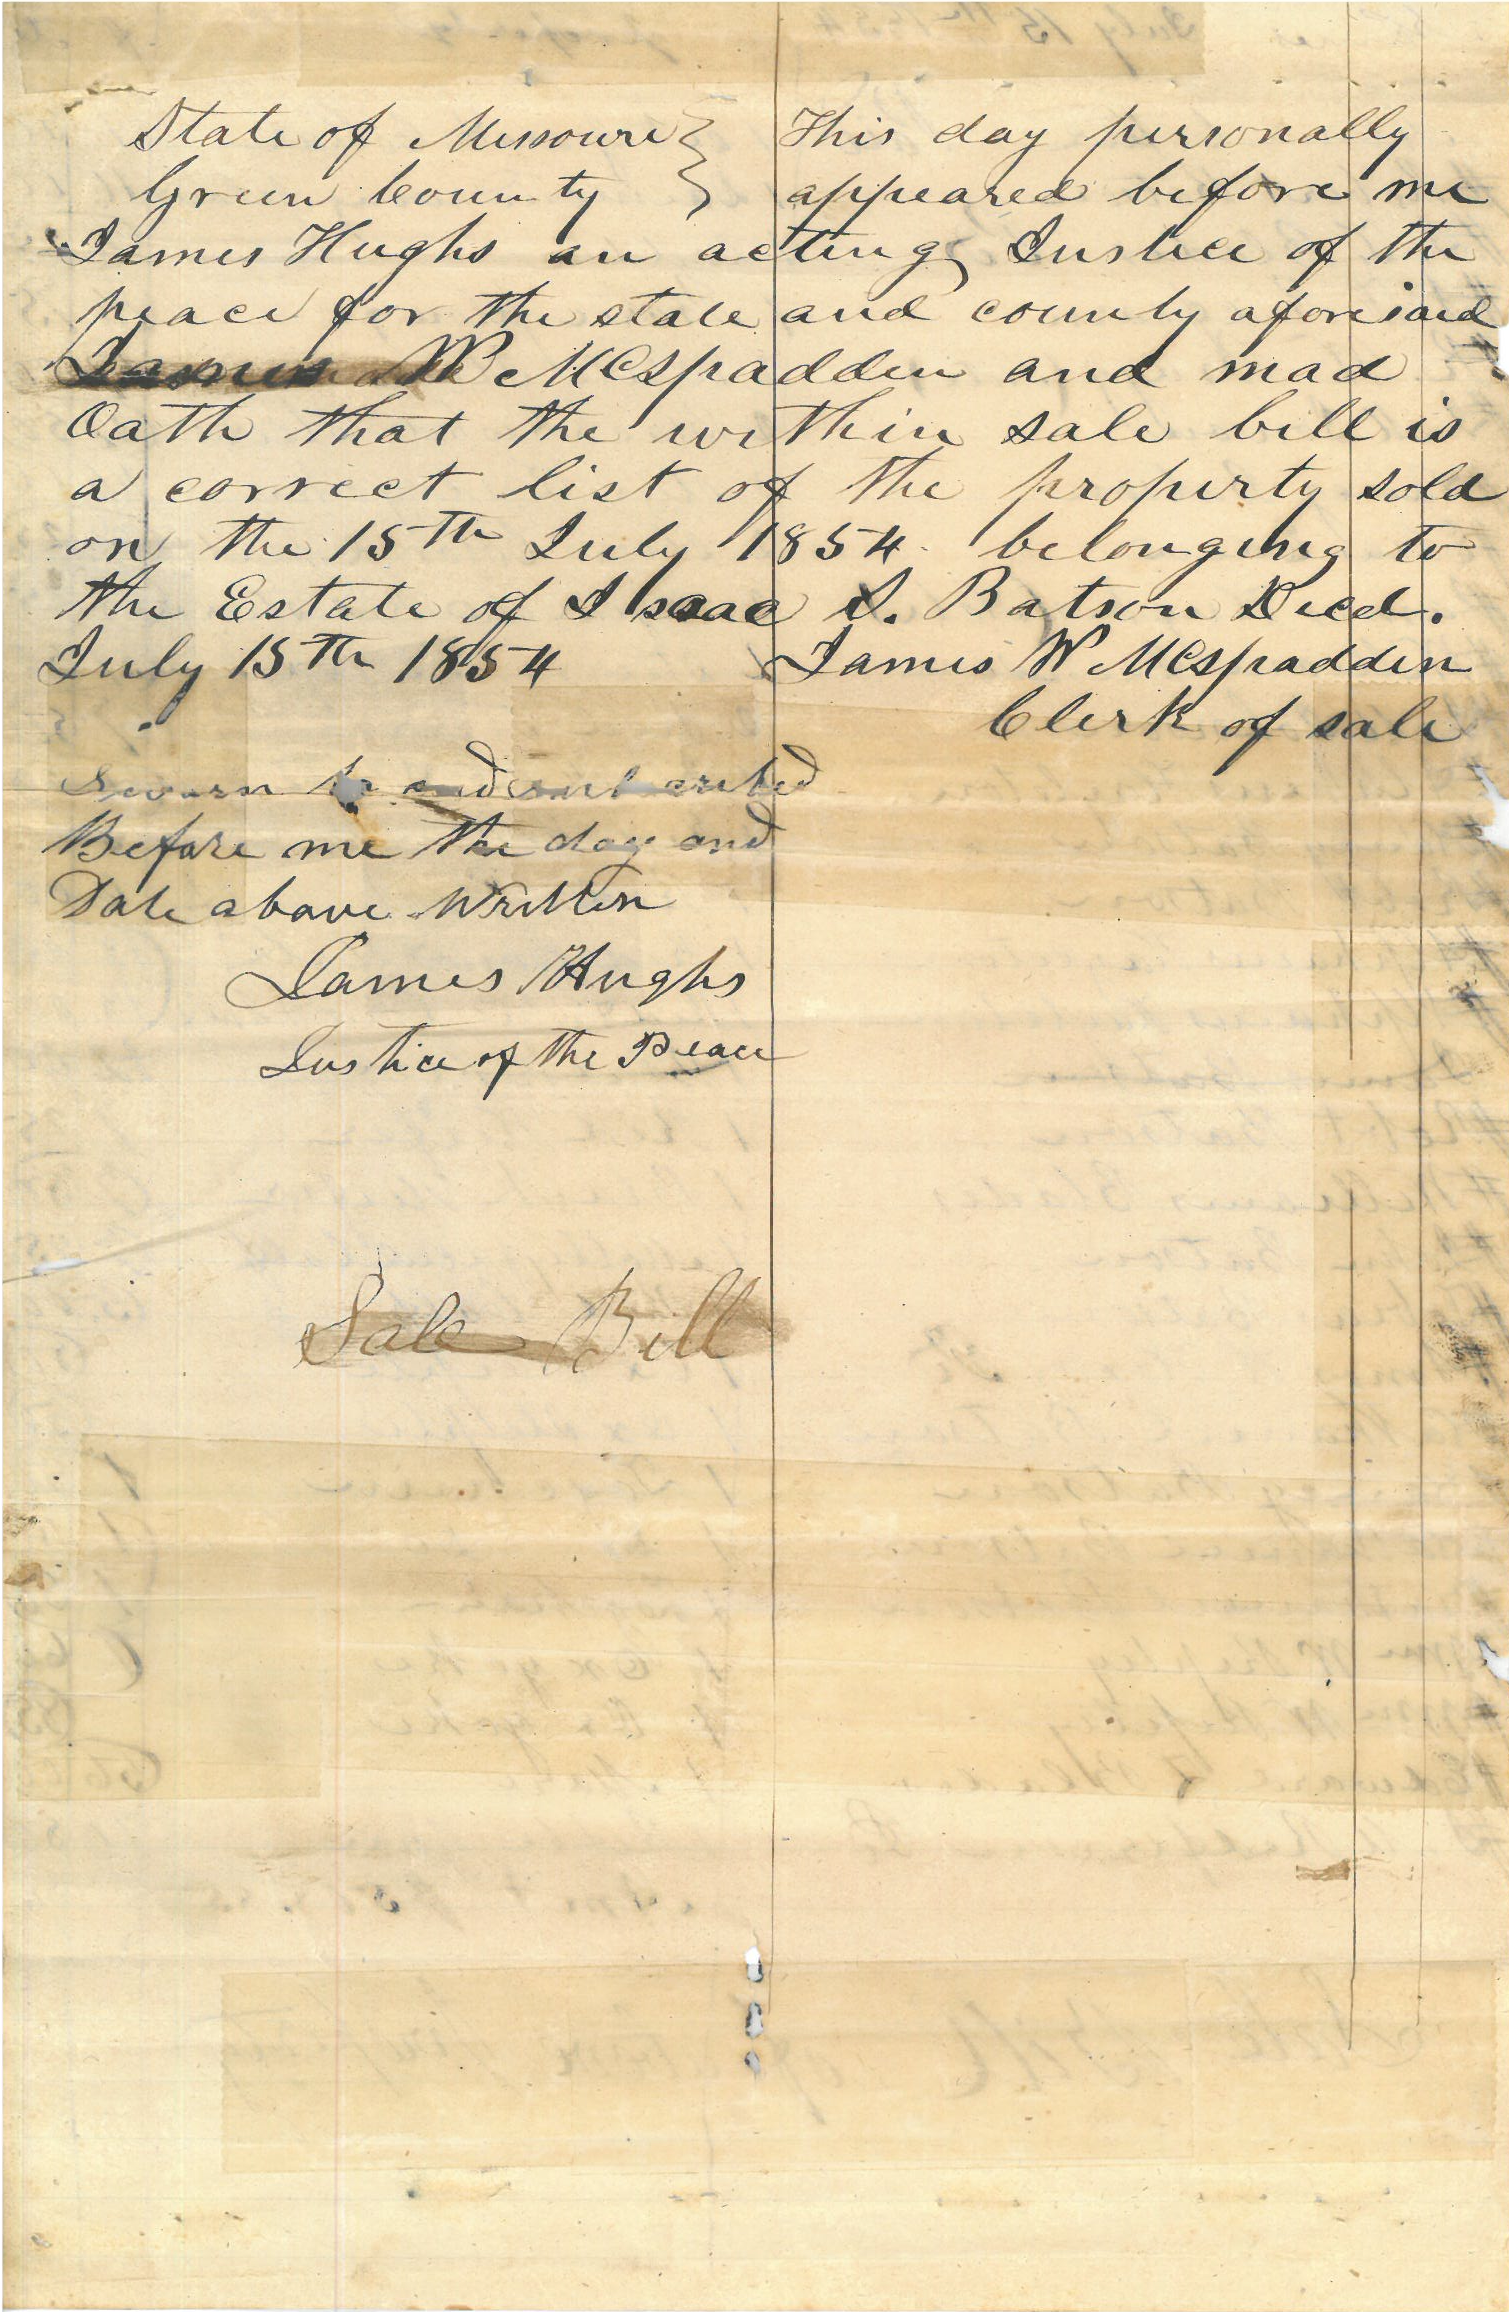 State of Missouri } This day personally
Green County } appeared before me
James Hughs an acting Justice of the
peace for the state and county aforesaid
James W McSpadden and mad
Oath that the within sale bill is
a correct list of the property sold
on the 15th July 1854 belonging to
the Estate of Isaac S. Batson Decd.
July 15th 1854 James W McSpadden
Clerk of sale
Sworn to and subscribed
Before me the day and
Date above Written
James Hughs
Justice of the Peace
Sale Bill